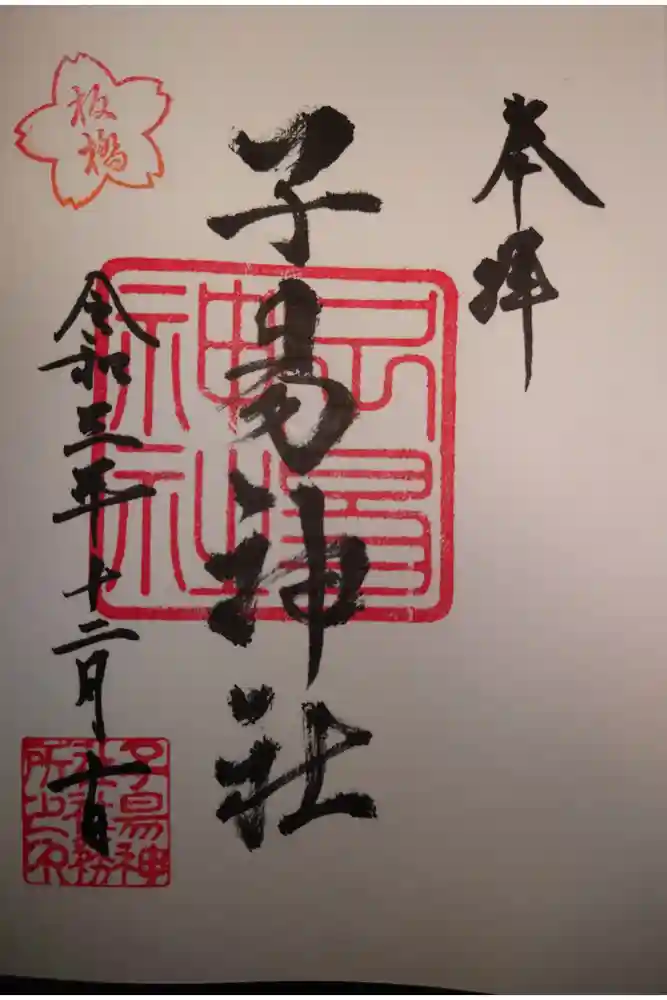 奉拝
子易神社
子易神社
令和三年十二月十日
板橋
子易神社社務所之印